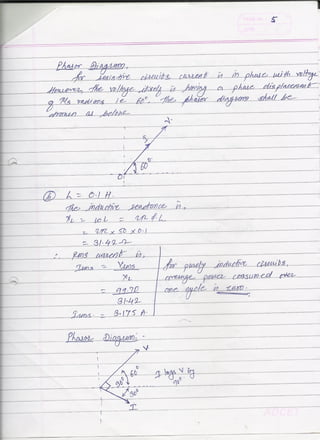 5
Phasor Diagram.
for resistive circuits current is in phase with voltage
However, the voltage itself is having a phase displacement
of π/3 radians i.e. 60°. The phasor diagram shall be
drawn as below.
V
I
60°
O
b) L = 0.1 H
The inductive reactance is,
XL = ωL = 2π f L
= 2π × 50 × 0.1
= 31.42 Ω
∴ RMS current is,
Irms = Vrms
XL
= 99.70
31.42
Irms = 3.175 A
for purely inductive circuits,
average power consumed over
one cycle is zero.
Phasor Diagram:-
V
60°
90°
30°
I
I lags V by
90°